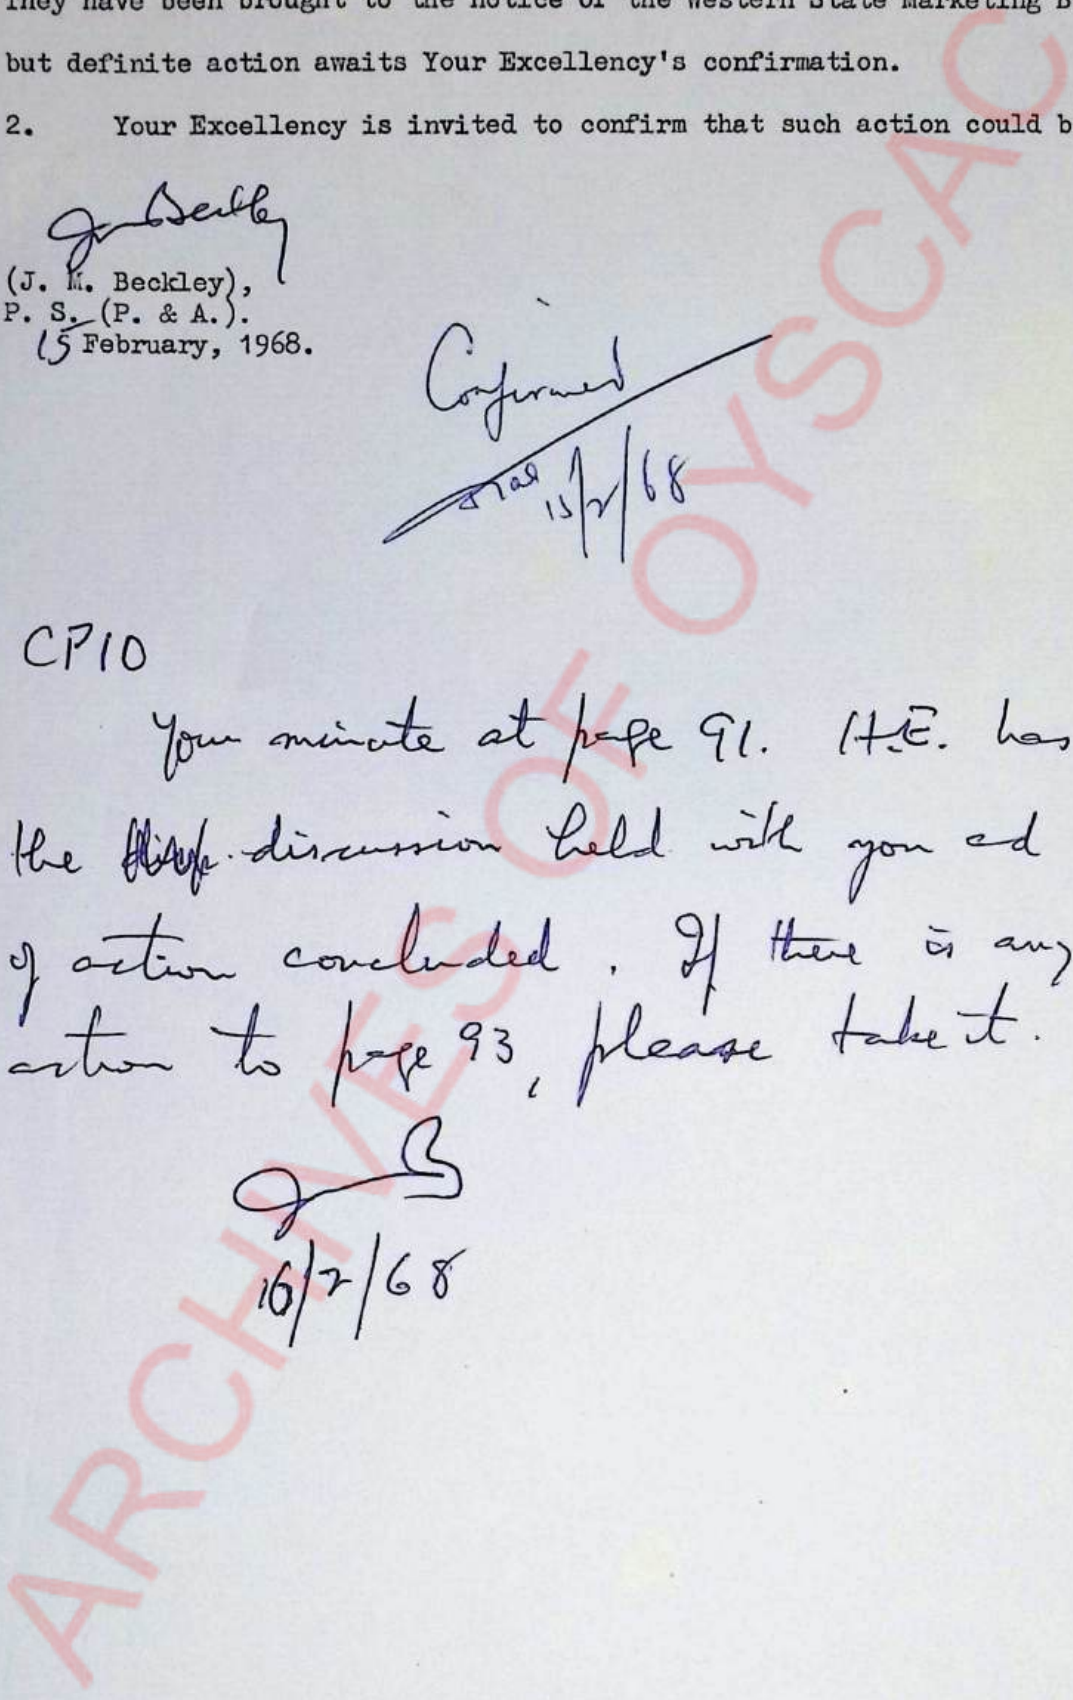 They have been brought to the notice of the Western State Marketing B
but definite action awaits Your Excellency's confirmation.
2. Your Excellency is invited to confirm that such action could b
J M Beckley
(J. M. Beckley),
P. S. (P. & A.).
15 February, 1968.
Confirmed
15/2/68
CPIO
Your minute at page 91. H.E. has
the discussion held with you ad
of action concluded. If there is any
action to page 93, please take it.
16/2/68
ARCHIVES OF OYSCAC